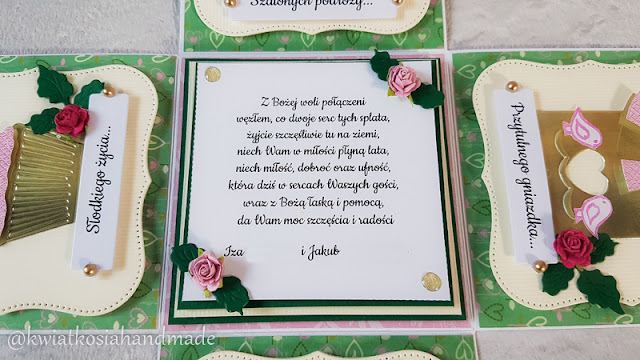 Szalonych podróży...
Z Bożej woli połączeni
węzłem, co dwoje serc tych splata,
żyjcie szczęśliwie tu na ziemi,
niech Wam w miłości płyną lata,
niech miłość, dobroć oraz ufność,
która dziś w sercach Waszych gości,
wraz z Bożą łaską i pomocą,
da Wam moc szczęścia i radości
Iza i Jakub
Słodkiego życia...
Przytulnego gniazdka...
@kwiatkosiahandmade